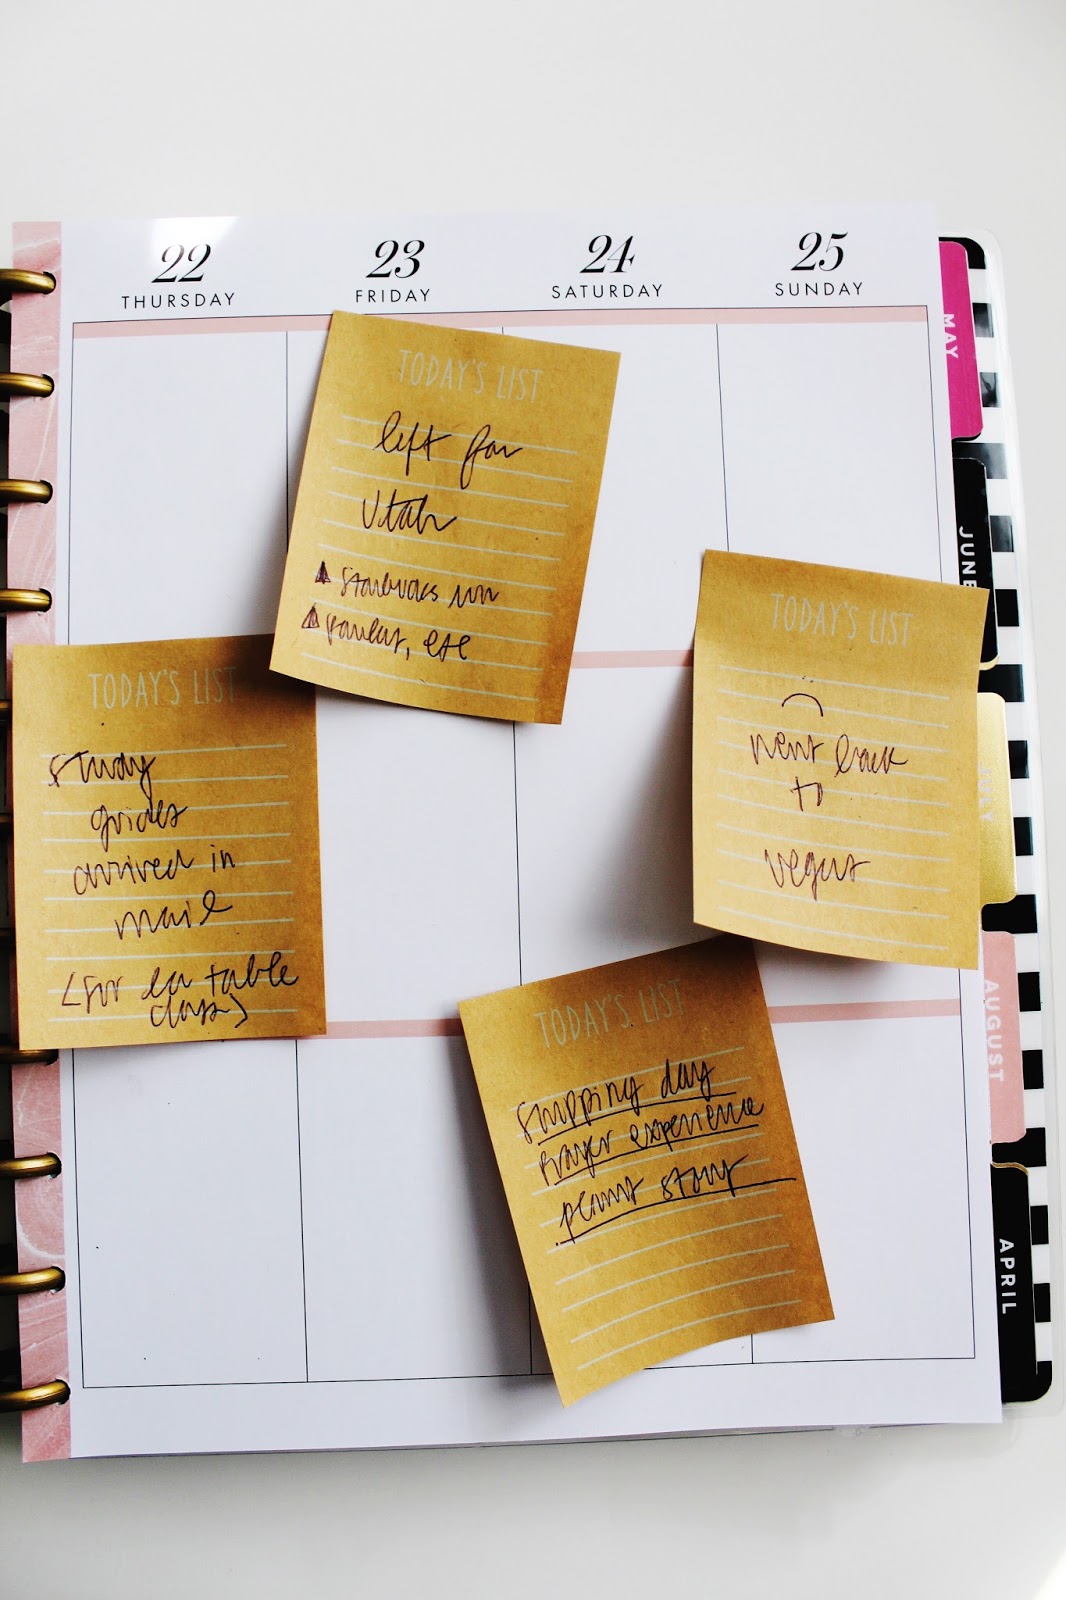 22
THURSDAY
23
FRIDAY
24
SATURDAY
25
SUNDAY
TODAY'S LIST
left for
Utah
Starbucks run
parents, etc
TODAY'S LIST
Study
guides
arrived in
mail
(for la table
class)
TODAY'S LIST
went back
to
vegas
TODAY'S LIST
Shopping day
Prayer experience
planner story
MAY
JUNE
JULY
AUGUST
APRIL